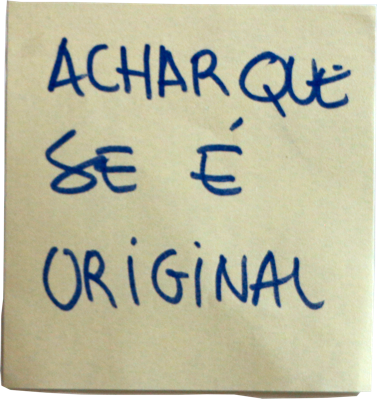 ACHAR QUE
SE É
ORIGINAL